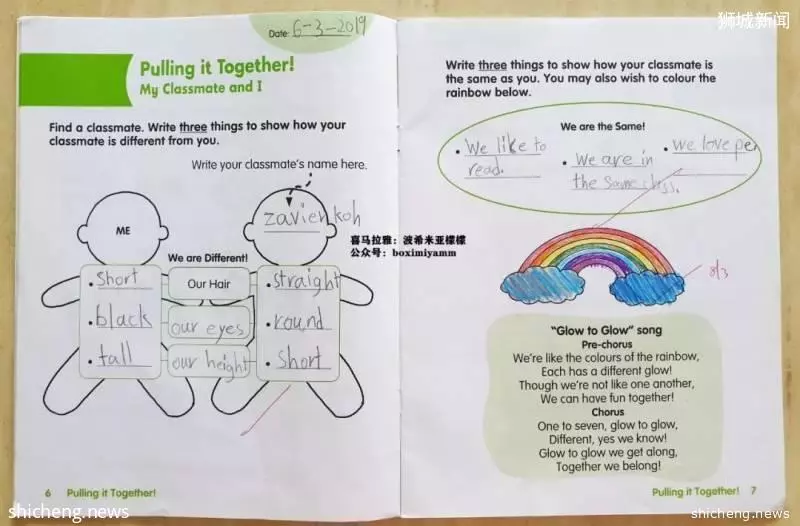 狮城新闻
Date: 6-3-2019
Pulling it Together!
My Classmate and I
Find a classmate. Write three things to show how your
classmate is different from you.
Write your classmate's name here.
ME
zavien koh
We are Different!
short
Our Hair
straight
black
our eyes
round
tall
our height
short
6 Pulling it Together!
Write three things to show how your classmate is
the same as you. You may also wish to colour the
rainbow below.
We are the Same!
We like to
read.
We are in
the same class.
we love pe
8/3
"Glow to Glow" song
Pre-chorus
We're like the colours of the rainbow,
Each has a different glow!
Though we're not like one another,
We can have fun together!
Chorus
One to seven, glow to glow,
Different, yes we know!
Glow to glow we get along,
Together we belong!
Pulling it Together! 7
喜马拉雅：波希米亚檬檬
公众号：boximiyamm
shicheng.news
shicheng.news